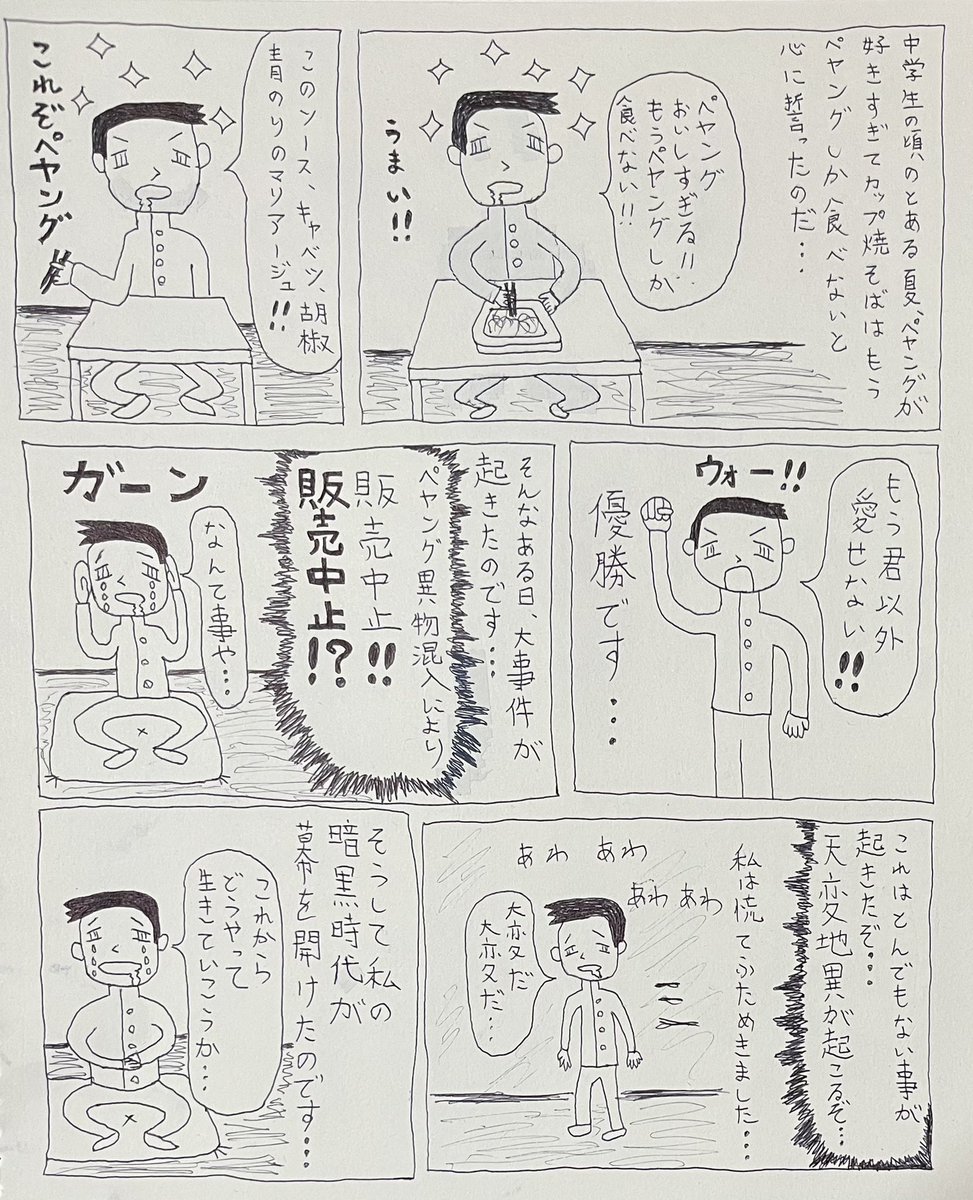 中学生の頃、のとある夏、ペヤングが
好きすぎてカップ焼そばはもう
ペヤングしか食べないと
心に誓ったのだ・・・
ペヤング
おいしすぎる!!
もうペヤングしか
食べない!!
うまい!!
このソース、キャベツ、胡椒
青のりのマリアージュ!!
これぞペヤング
もう君以外
愛せない!!
ウォー!!
優勝です・・・
そんなある日、大事件が
起きたのです・・・
ペヤング異物混入により
販売中止!!
販売中止!?
なんて事や・・・
ガーン
これはとんでもない事が
起きたぞ・・・
天変地異が起こるぞ・・・
私は慌てふためきました・・・
あわ あわ
あわ あわ
大変だ
大変だ・・・
そうして私の
暗黒時代が
幕を開けたのです・・・
これから
どうやって
生きていこうか・・・